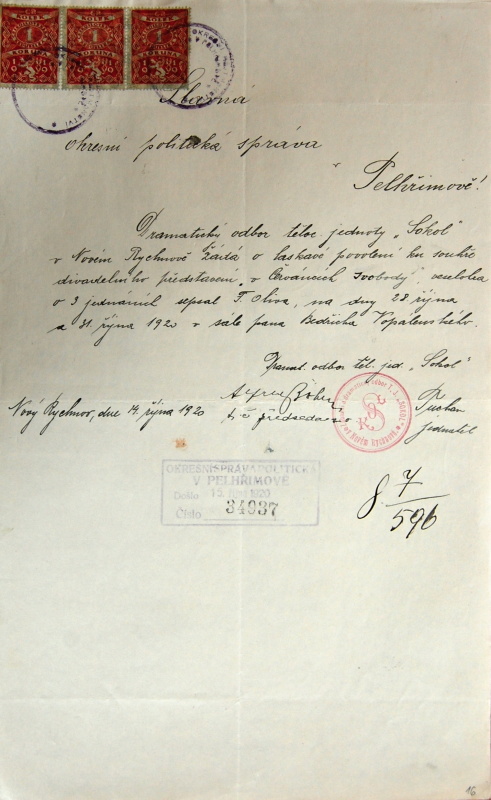 KOLEK KOLEK KOLEK
1 1 1
KORUNA KORUNA KORUNA
Slavná
Okresní politická správa
v Pelhřimově!
Dramatický odbor těloc. jednoty „Sokol“
v Novém Rychnově žádá o laskavé povolení ku souhře
divadelního představení „v Červáncích svobody“ veselohra
o 3 jednáních sepsal F. Oliva, na dny 28 října
a 31. října 1920 v sále pana Bedřicha Vopálenského.
Dramat. odbor těl. jed. „Sokol“
Nový Rychnov, dne 14. října 1920
předseda
jednatel
OKRESNÍ SPRÁVA POLITICKÁ
V PELHŘIMOVĚ
Došlo 15. ŘÍJ. 1920
Číslo 34037
8 7/596
16